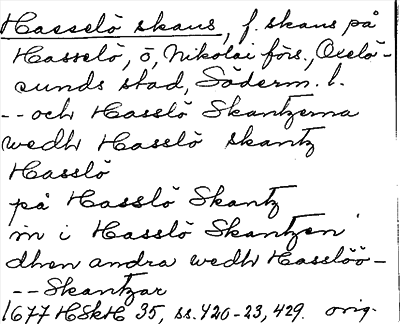 Hasselö skans, f. skans på
Hasselö, ö, Nikolai förs., Oxelö-
sunds stad, Söderm. l.
-- och Hasslö Skantzerna
wedh Hasslö skantz
Hasslö
på Hasslö Skantz
in i Hasslö Skantzen
dhen andra wedh Hasslöö-
-- Skantzar
1677 HSkH 35, ss. 420-23, 429. orig.